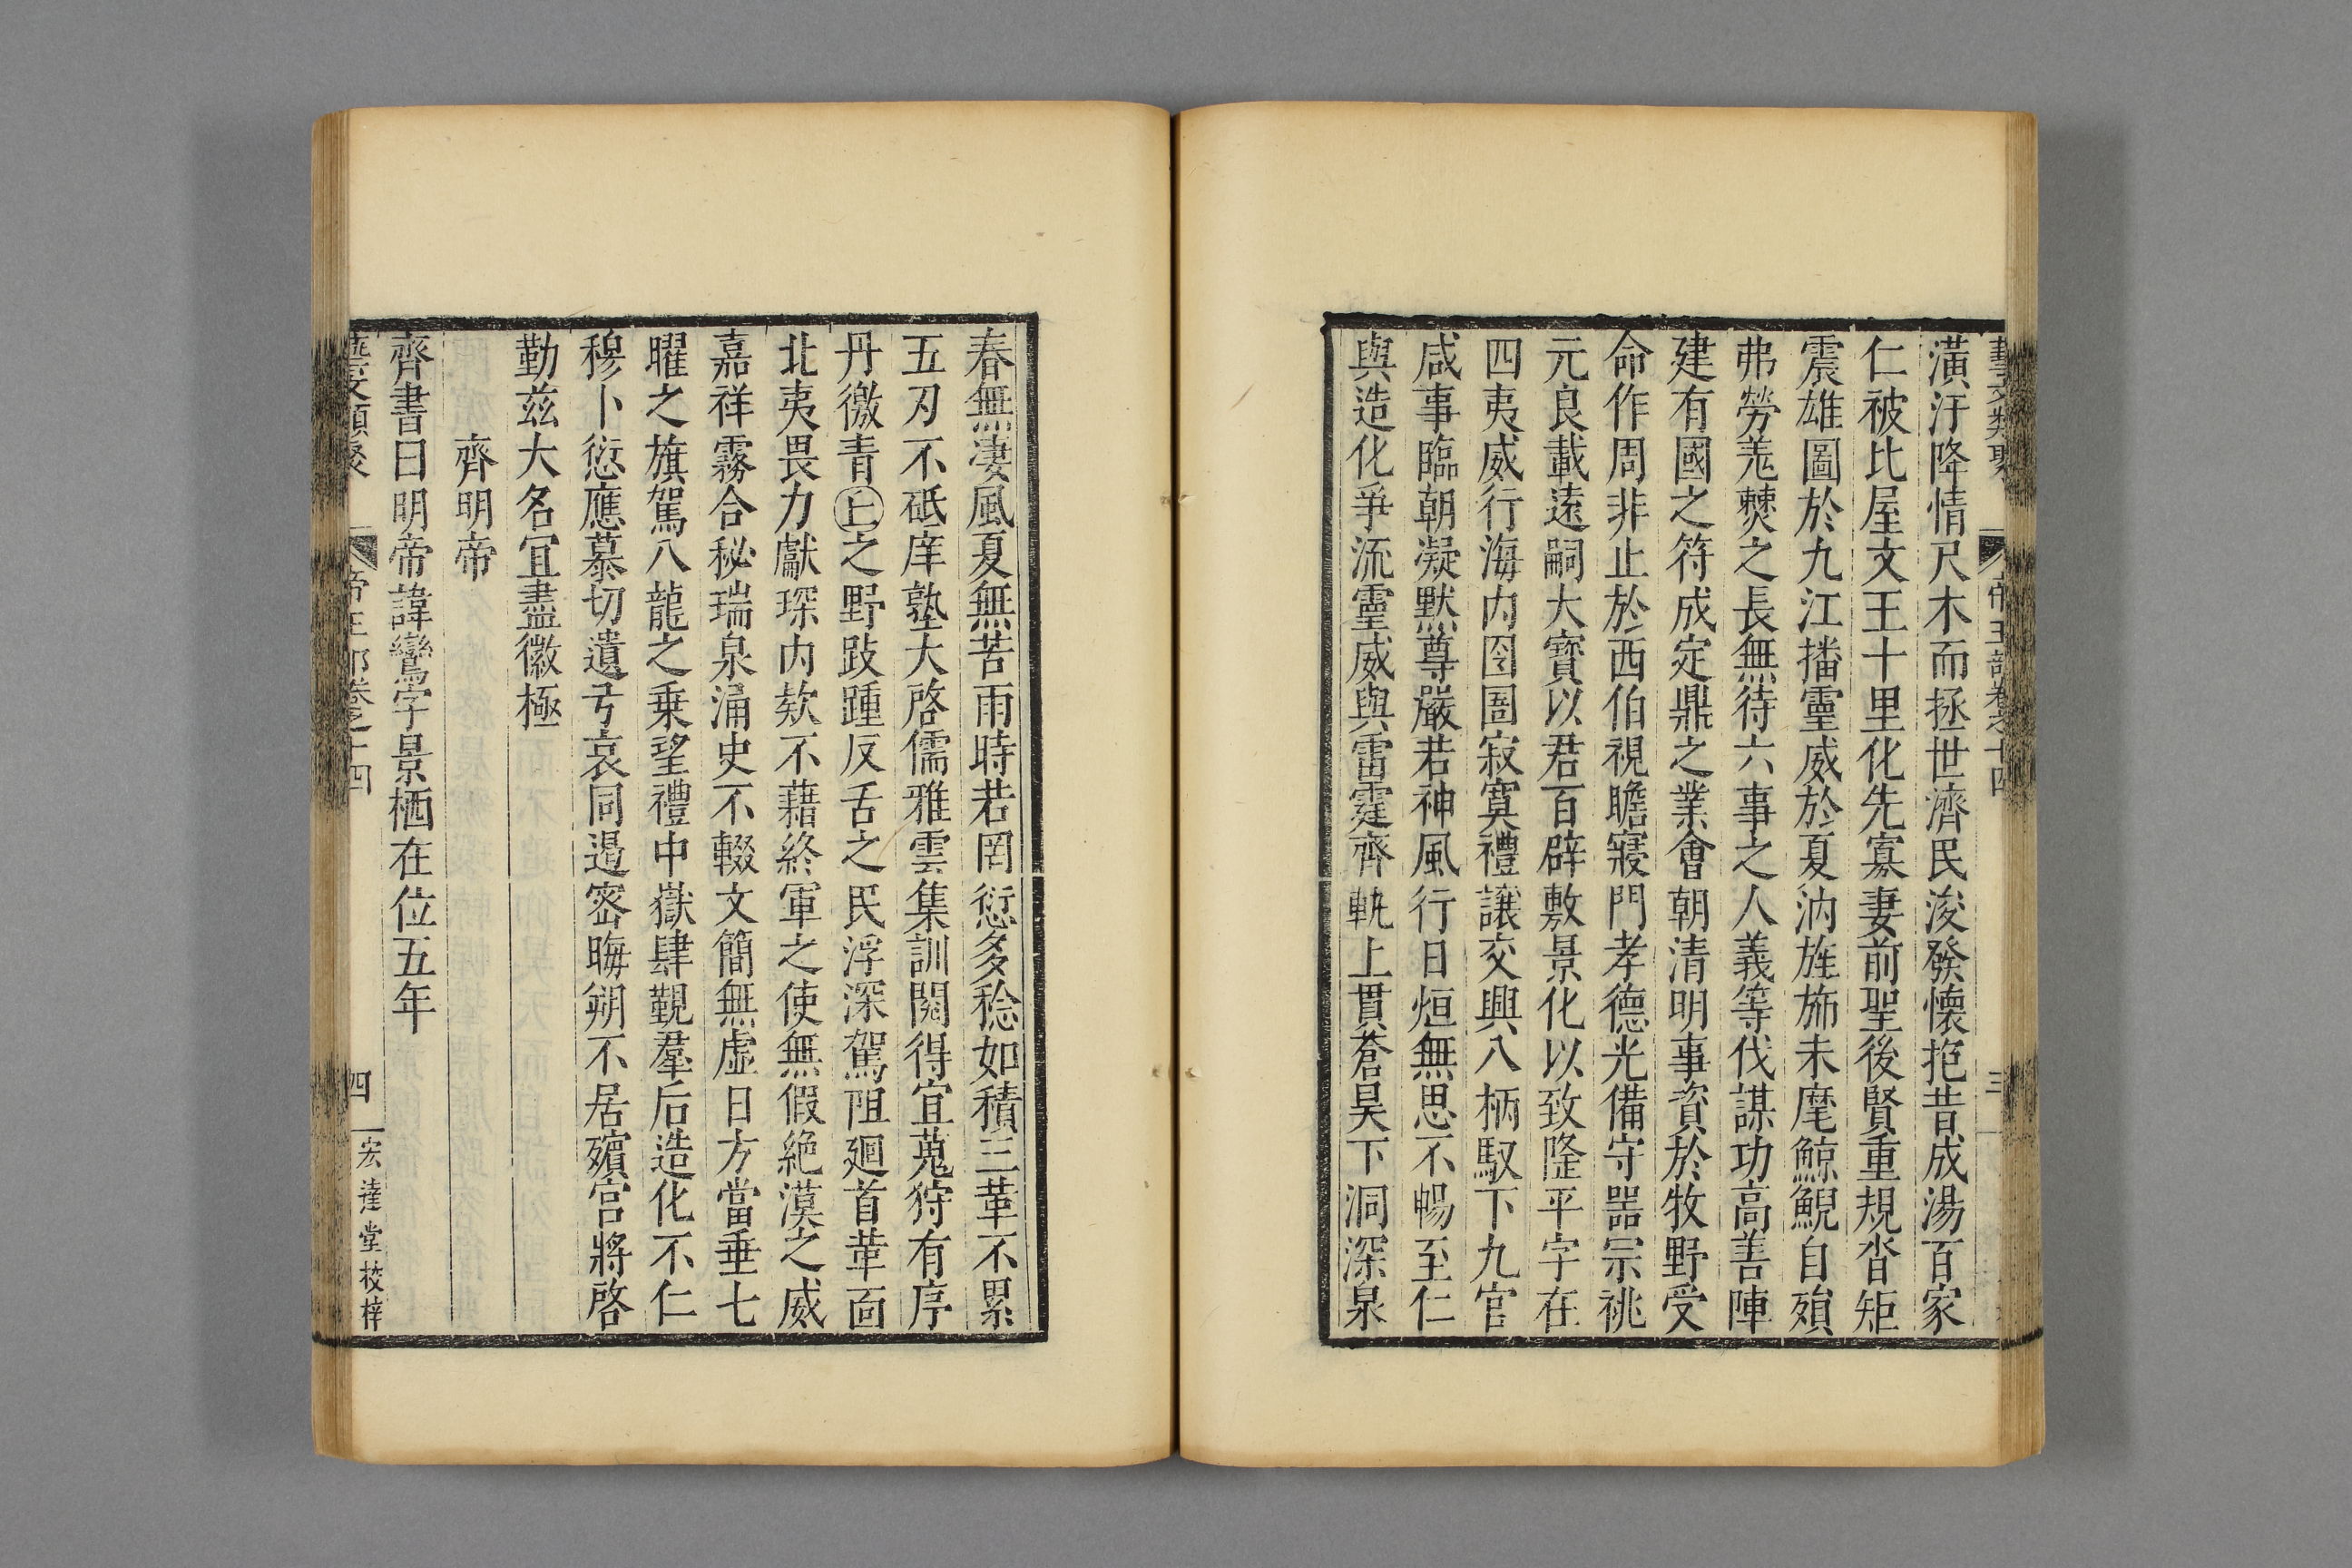 藝文類聚 帝王部卷之十四 三
潢汙降情尺木而拯世濟民浚發懷抱昔成湯百家
仁被比屋文王十里化先寡妻前聖後賢重規沓矩
震雄圖於九江播靈威於夏汭旌斾未麾鯨鯢自殞
弗勞羗㷱之長無待六事之人義等伐謀功高善陣
建有國之符成定鼎之業會朝清明事資於牧野受
命作周非止於西伯視瞻寢門孝德光備守噐宗祧
元良載遠嗣大寶以君百辟敷景化以致隆平字在
四夷威行海内囹圄寂寞禮讓交興八柄馭下九官
咸事臨朝凝默尊嚴若神風行日烜無思不暢至仁
與造化爭流靈威與雷霆齊軌上貫蒼昊下洞深泉
春無淒風夏無苦雨時若罔愆多稔如積三革不累
五刃不砥庠塾大啓儒雅雲集訓閱得宜蒐狩有序
丹徼青㊤之野跂踵反舌之民浮深駕阻廻首革面
北夷畏力獻琛内欵不藉終軍之使無假絶漠之威
嘉祥霧合秘瑞泉涌史不輟文簡無虚日方當垂七
曜之旗駕八龍之乗望禮中嶽肆覲羣后造化不仁
穆卜愆應慕切遺弓哀同遏密晦朔不居殯宫將啓
勤兹大名冝盡徽極
齊明帝
齊書曰明帝諱鸞字景栖在位五年
藝文類聚 帝王部卷之十四 四 宏達堂校梓